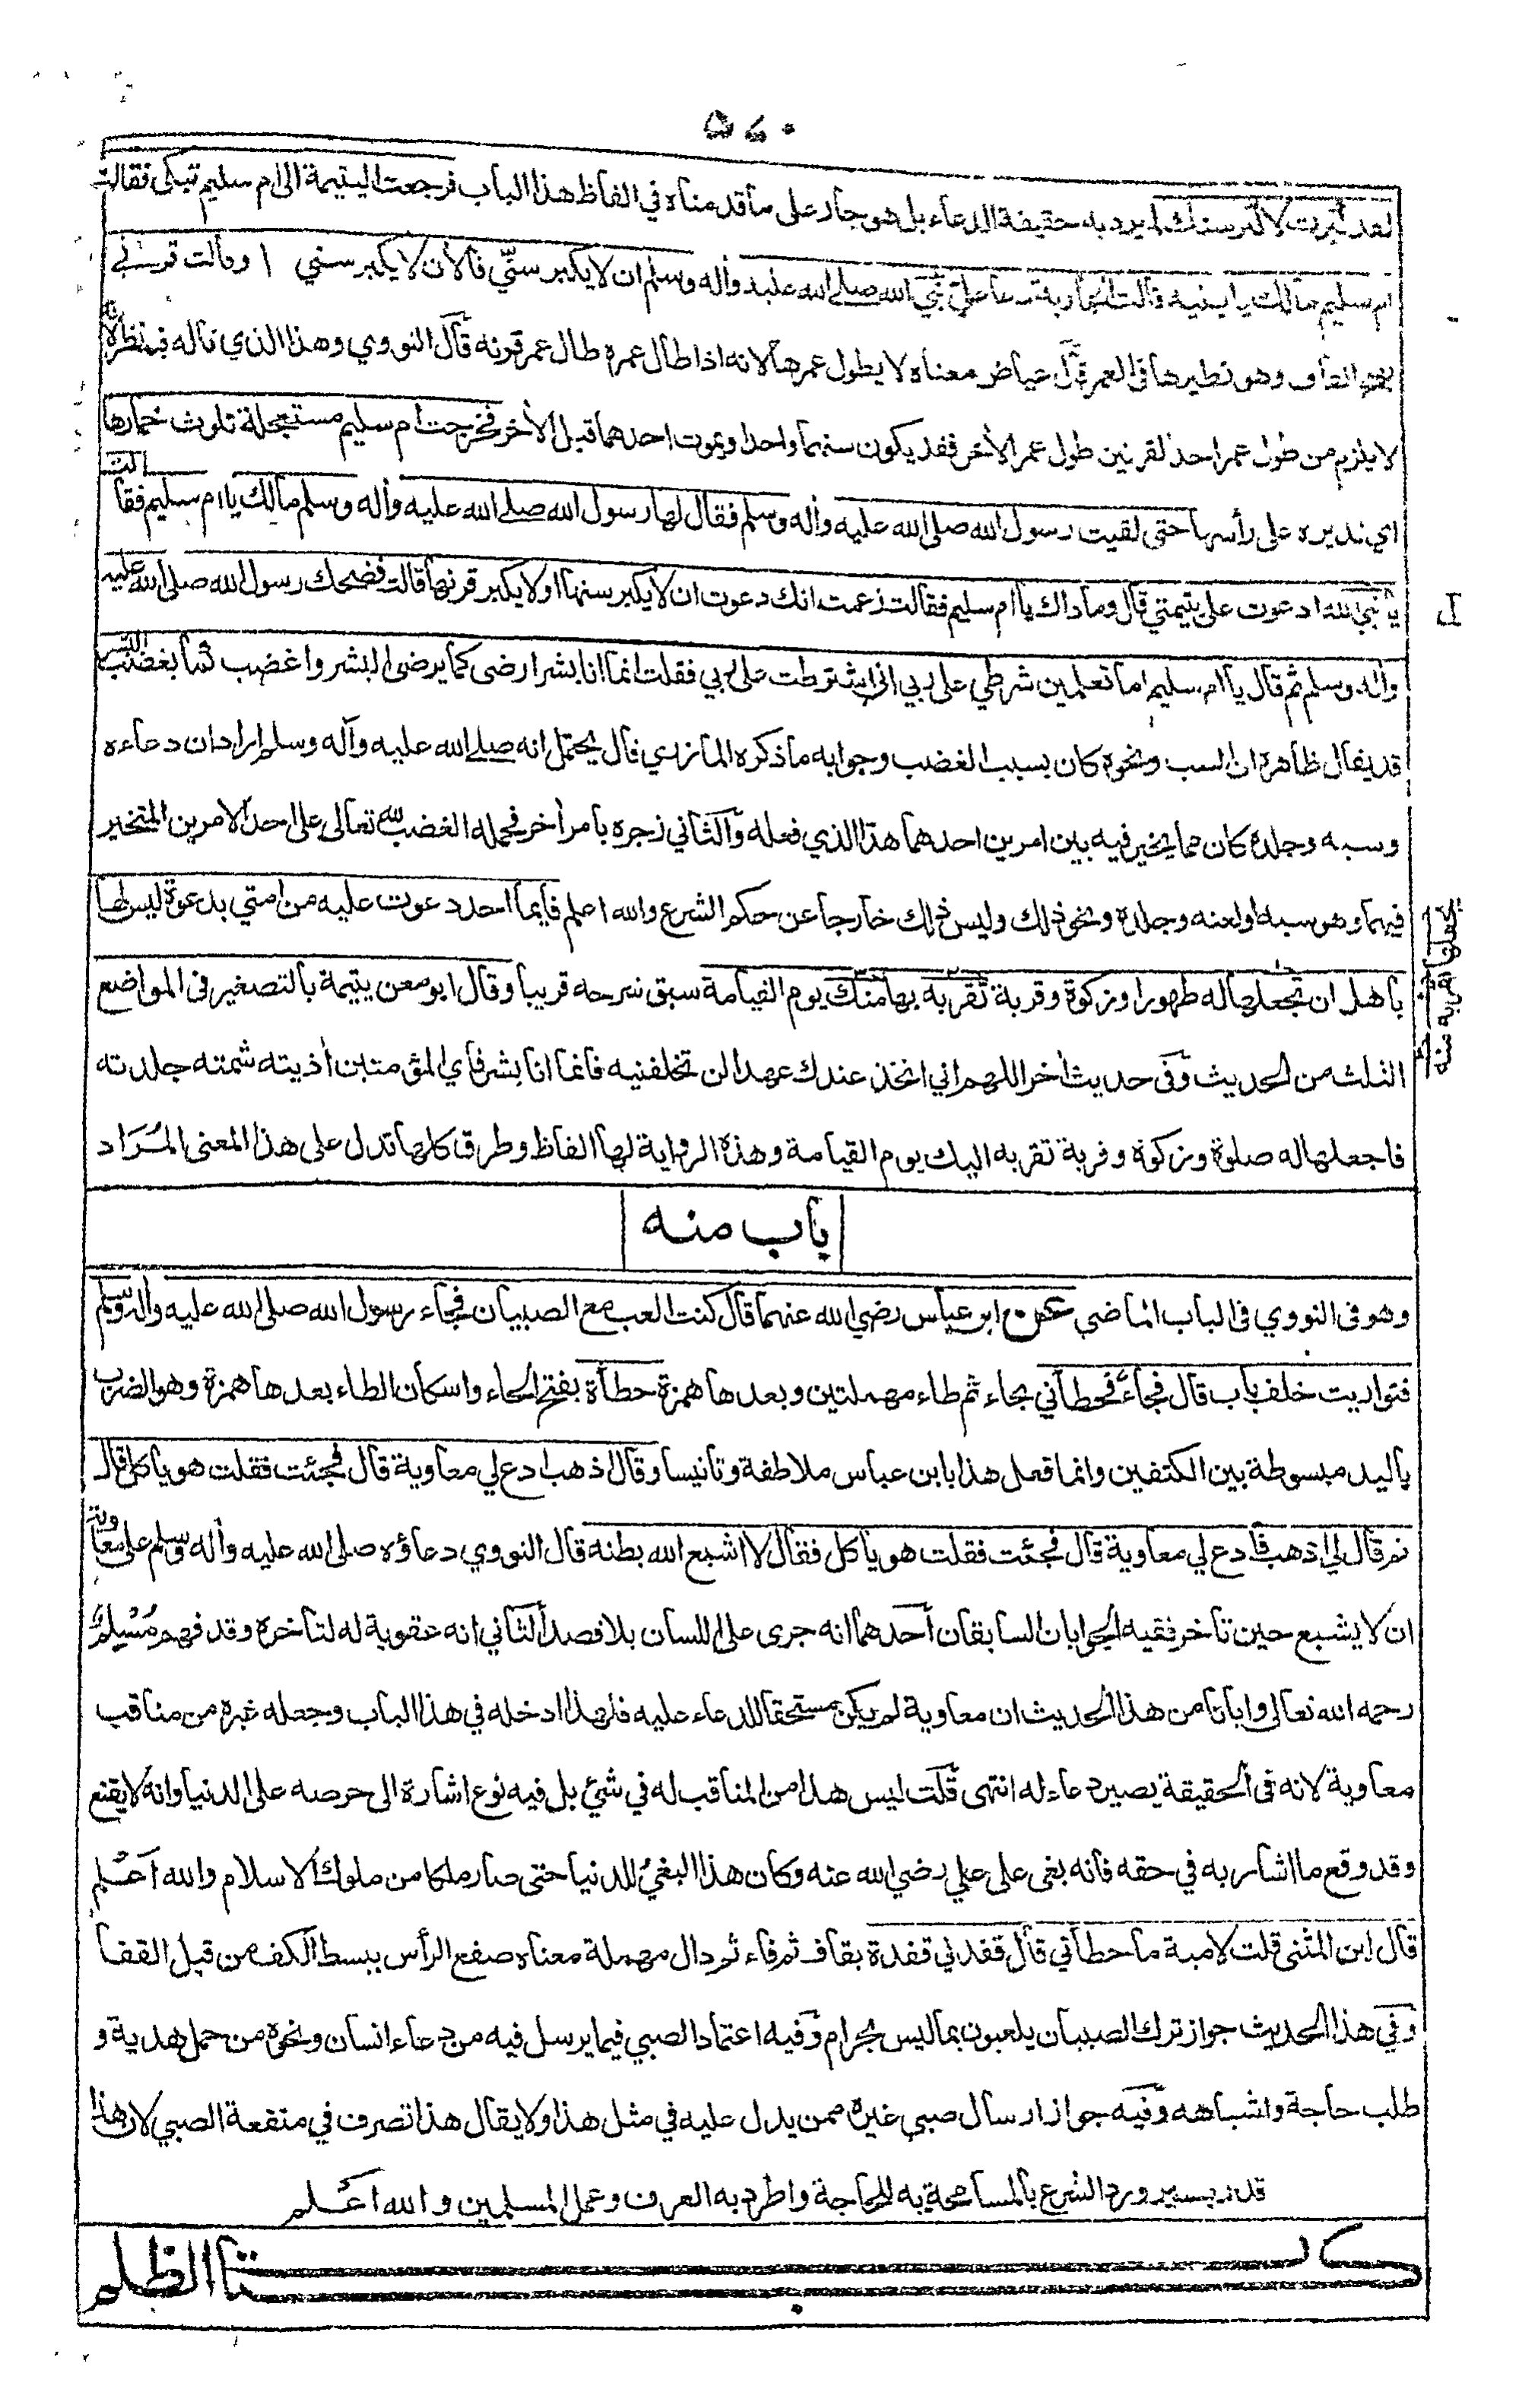 ۵۷۰
لقد كبرت لا كبر سنك لم يرد به حقيقة الدعاء بل هو جار على ما قدمناه في الفاظ هذا الباب فرجعت اليتيمة الى ام سليم تبكي فقالت
ام سليم مالك يا بنية قالت الجارية دعا علي نبي الله صلى الله عليه وأله وسلم ان لا يكبر سنّي فالأن لا يكبر سني ا وقالت قرني
بفتح القاف وهو نظيرها في العمر قال عياض معناه لا يطول عمرها لانه اذا طال عمره طال عمر قرنه قال النووي وهذا الذي قاله فيه نظر لانه
لا يلزم من طول عمر احد القرنين طول عمر الأخر فقد يكون سنهما واحدا ويموت احدهما قبل الأخر فخرجت ام سليم مستعجلة تلوث خمارها
اي تديره على رأسها حتى لقيت رسول الله صلى الله عليه وأله وسلم فقال لها رسول الله صلى الله عليه وأله وسلم مالك يا ام سليم فقالت
يا نبي الله ادعوت على يتيمتي قال وما ذاك يا ام سليم فقالت زعمت انك دعوت ان لا يكبر سنها او لا يكبر قرنها قالت فضحك رسول الله صلى الله عليه
وأله وسلم ثم قال يا ام سليم اما تعلمين شرطي على ربي اني اشترطت على ربي فقلت انما انا بشر ارضى كما يرضى البشر واغضب كما يغضب البشر
قد يقال ظاهره ان السب ونحوه كان بسبب الغضب وجوابه ما ذكره المازري قال يحتمل انه صلى الله عليه وأله وسلم اراد ان دعاءه
وسبه وجلده كان مما يخير فيه بين امرين احدهما هذا الذي فعله والثاني زجره بامر أخر فحمله الغضب لله تعالى على احد الامرين المتخير
فيهما وهو سبه او لعنه وجلده ونحو ذلك وليس ذلك خارجا عن حكم الشرع والله اعلم فأيما احد دعوت عليه من امتي بدعوة ليس لها
باهل ان تجعلها له طهورا وزكوة وقربة تقربه بها منك يوم القيامة سبق شرحه قريبا وقال ابو معن يتيمة بالتصغير في المواضع
الثلث من الحديث وفي حديث أخر اللهم اني اتخذ عندك عهدا لن تخلفنيه فانما انا بشر فأي المؤمنين أذيته شمته جلدته
فاجعلها له صلوة وزكوة وقربة تقربه اليك يوم القيامة وهذه الرواية لها الفاظ وطرق كلها تدل على هذا المعنى المُرَاد
باب منه
وهو في النووي في الباب الماضي عن ابن عباس رضي الله عنهما قال كنت العب مع الصبيان فجاء رسول الله صلى الله عليه وأله وسلم
فتواريت خلف باب قال فجاء فحطأني بحاء ثم طاء مهملتين وبعدها همزة حطأة بفتح الحاء واسكان الطاء بعدها همزة وهو الضرب
باليد مبسوطة بين الكتفين وانما فعل هذا بابن عباس ملاطفة وتأنيسا وقال اذهب ادع لي معاوية قال فجئت فقلت هو يأكل قال
ثم قال لي اذهب فادع لي معاوية قال فجئت فقلت هو يأكل فقال لا اشبع الله بطنه قال النووي دعاؤه صلى الله عليه وأله وسلم على معاوية
ان لا يشبع حين تأخر ففيه الجوابان السابقان احدهما انه جرى على اللسان بلا قصد الثاني انه عقوبة له لتأخره وقد فهم مُسْلِمٌ
رحمه الله تعالى وايانا من هذا الحديث ان معاوية لم يكن مستحقا للدعاء عليه فلهذا ادخله في هذا الباب وجعله غيره من مناقب
معاوية لانه في الحقيقة يصير دعاء له انتهى قلت ليس هذا من المناقب له في شئ بل فيه نوع اشارة الى حرصه على الدنيا وانه لا يقنع
وقد وقع ما اشار به في حقه فانه بغى على علي رضي الله عنه وكان هذا البغيُ للدنيا حتى صار ملكا من ملوك الاسلام والله اَعْلم
قال ابن المثنى قلت لامية ما حطأني قال قفدني قفدة بقاف ثم فاء ثم دال مهملة معناه صفع الرأس ببسط الكف من قبل القفا
وفي هذا الحديث جواز ترك الصبيان يلعبون بما ليس بحرام وفيه اعتماد الصبي فيما يرسل فيه من دعاء انسان ونحوه من حمل هدية و
طلب حاجة واشباهه وفيه جواز ارسال صبي غيره ممن يدل عليه في مثل هذا ولا يقال هذا تصرف في منفعة الصبي لان هذا
قدر يسير ورد الشرع بالمسامحة به للحاجة واطرد به العرف وعمل المسلمين والله اعَلم
كتاب الظلم